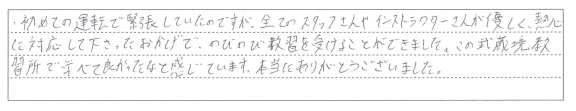 ・初めての運転で緊張していたのですが、全てのスタッフさんやインストラクターさんが優しく、熱心
に対応して下さったおかげで、のびのび教習を受けることができました。この武蔵境教
習所で学べて良かったなと感じています、本当にありがとうございました。